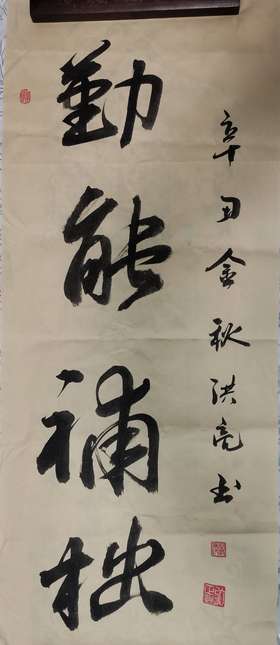 勤能補拙
辛丑金秋洪亮书